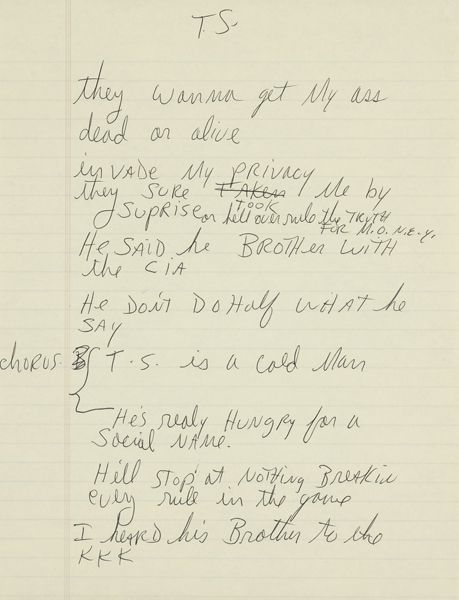 T.S.
they wanna get My ass
dead or alive
invade My privacy
they SURE TAKen Me by
TOOK
SUPRISE or hell overrule the TRUTH
FOR M.O.N.E.Y.
He SAID he BROTHer WITH
the CIA
He Don't Do Half WHAT he
SAY
chorus. T.S. is a cold Man
He's realy HUNGRY for a
Social NAME.
He'll STOP at NOTHING BreaKin
every rule in the game
I heard his Brother to the
KKK